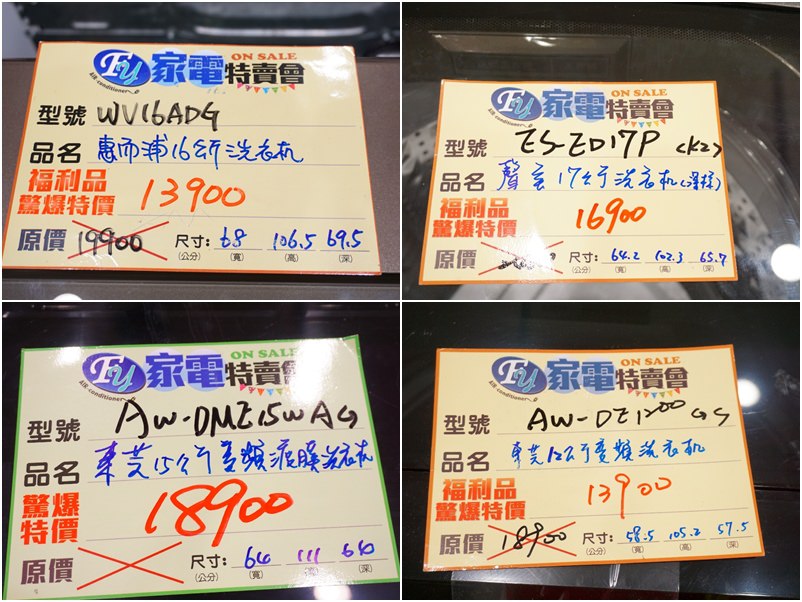 Fy 家電特賣會 ON SALE
AIR conditioner
型號 WV16ADG
品名 惠而浦16公斤洗衣机
福利品
驚爆特價 13900
原價 19900 尺寸: 68 106.5 69.5
(公分) (寬) (高) (深)
Fy 家電特賣會 ON SALE
AIR conditioner
型號 ES-ED17P (K2)
品名 聲宝17公斤洗衣机
福利品
驚爆特價 16900
原價 尺寸: 64.2 102.3 65.7
(公分) (寬) (高) (深)
Fy 家電特賣會 ON SALE
AIR conditioner
型號 AW-DME15WAG
品名 東芝15公斤变頻洗衣机
驚爆
特價 18900
原價 尺寸: 64 111 640
(公分) (寬) (高) (深)
Fy 家電特賣會 ON SALE
AIR conditioner
型號 AW-DE1200GG
品名 東芝12公斤变頻洗衣机
福利品
驚爆特價 13900
原價 18900 尺寸: 58.5 105.2 57.5
(公分) (寬) (高) (深)